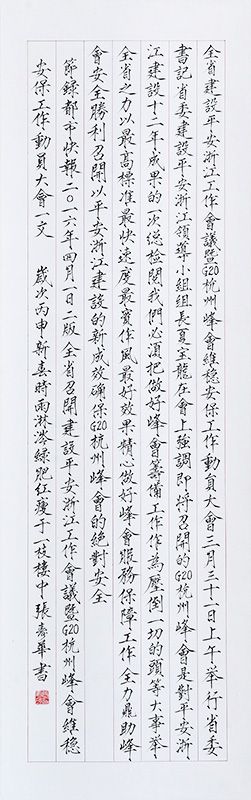 全省建設平安浙江工作會議暨G20杭州峰會維穩安保工作動員大會三月三十一日上午舉行省委
書記省委建設平安浙江領導小組組長夏寶龍在會上強調即將召開的G20杭州峰會是對平安浙
江建設十二年成果的一次總檢閱我們必須把做好峰會籌備工作作為壓倒一切的頭等大事舉
全省之力以最高標準最快速度最實作風最好效果精心做好峰會服務保障工作全力助峰
會安全勝利召開以平安浙江建設的新成效確保G20杭州峰會的絕對安全
節錄都市快報二〇一六年四月一日二版全省召開建設平安浙江工作會議暨G20杭州峰會維穩
安保工作動員大會一文 歲次丙申新春時雨淋涔綠肥紅瘦于一枝樓中張春華書